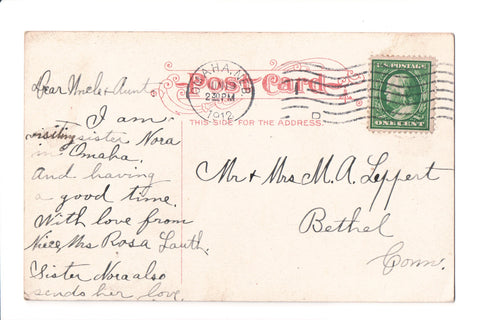 Post Card
THIS SIDE FOR THE ADDRESS.
OMAHA, NEB.
2 PM
1912
D
U.S. POSTAGE
ONE CENT
Dear Uncle & Aunt
I am
visiting sister Nora
in Omaha.
And having
a good time.
With love from
Niece, Mrs Rosa Lauth.
Sister Nora also
sends her love.
Mr & Mrs M. A. Leppert
Bethel
Conn.